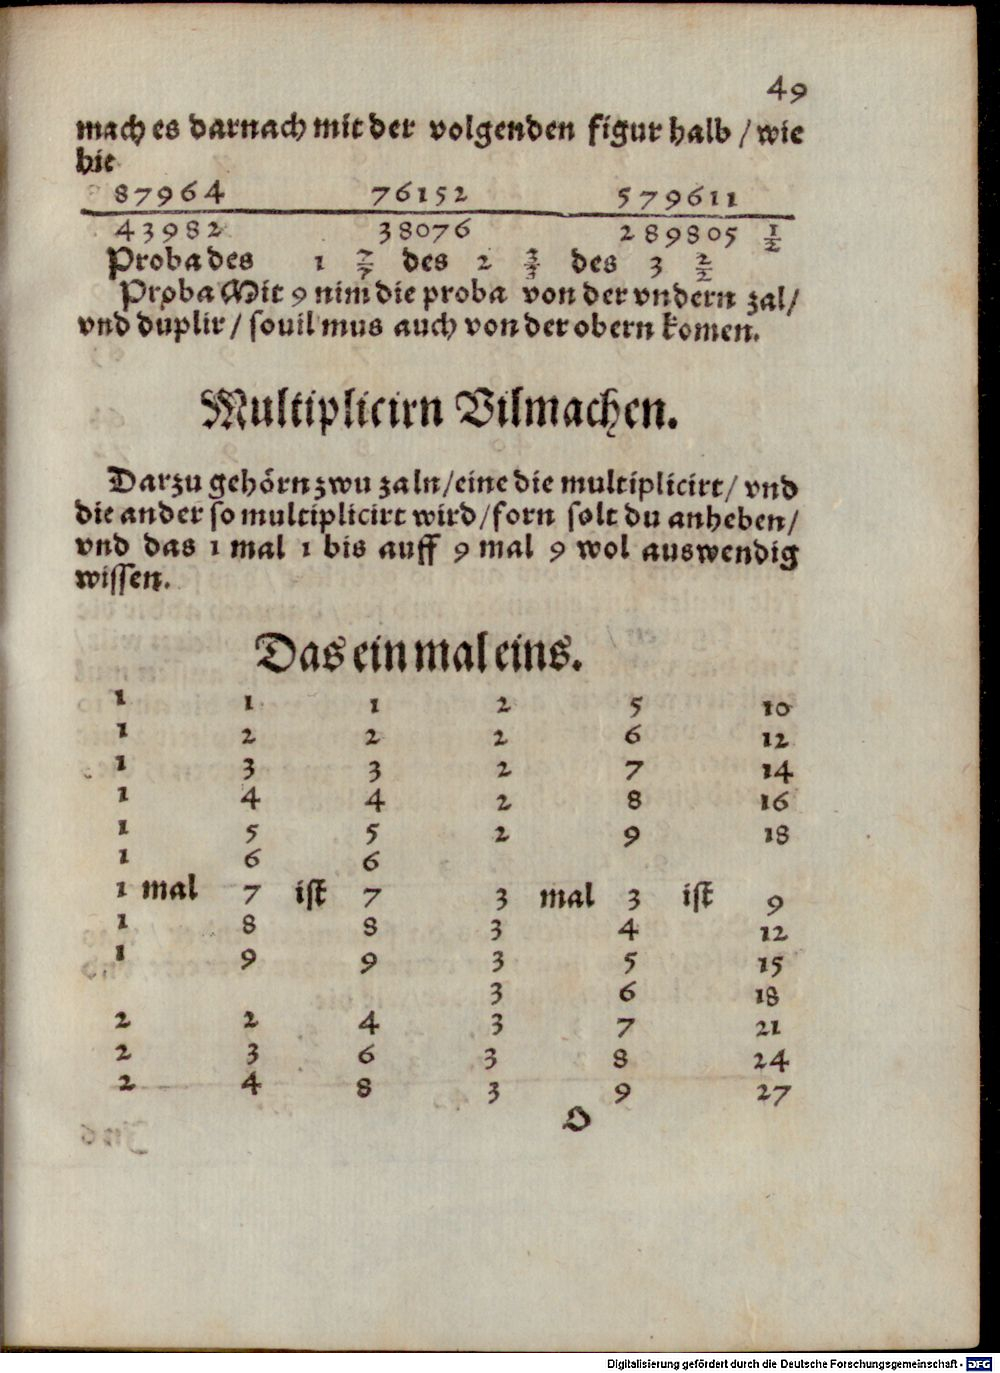 49
mach es darnach mit der volgenden figur halb / wie
hie
87964 76152 579611
43982 38076 289805 1/2
Proba des 1 7/7 des 2 3/3 des 3 2/2
Proba Mit 9 nim die proba von der vndern zal /
vnd duplir / souil mus auch von der obern komen.
Multiplicirn Vilmachen.
Darzu gehörn zwu zaln / eine die multiplicirt / vnd
die ander so multiplicirt wird / forn solt du anheben /
vnd das 1 mal 1 bis auff 9 mal 9 wol auswendig
wissen.
Das ein mal eins.
1 1 1 2 5 10
1 2 2 2 6 12
1 3 3 2 7 14
1 4 4 2 8 16
1 5 5 2 9 18
1 6 6
1 mal 7 ist 7 3 mal 3 ist 9
1 8 8 3 4 12
1 9 9 3 5 15
3 6 18
2 2 4 3 7 21
2 3 6 3 8 24
2 4 8 3 9 27
Digitalisierung gefördert durch die Deutsche Forschungsgemeinschaft - DFG